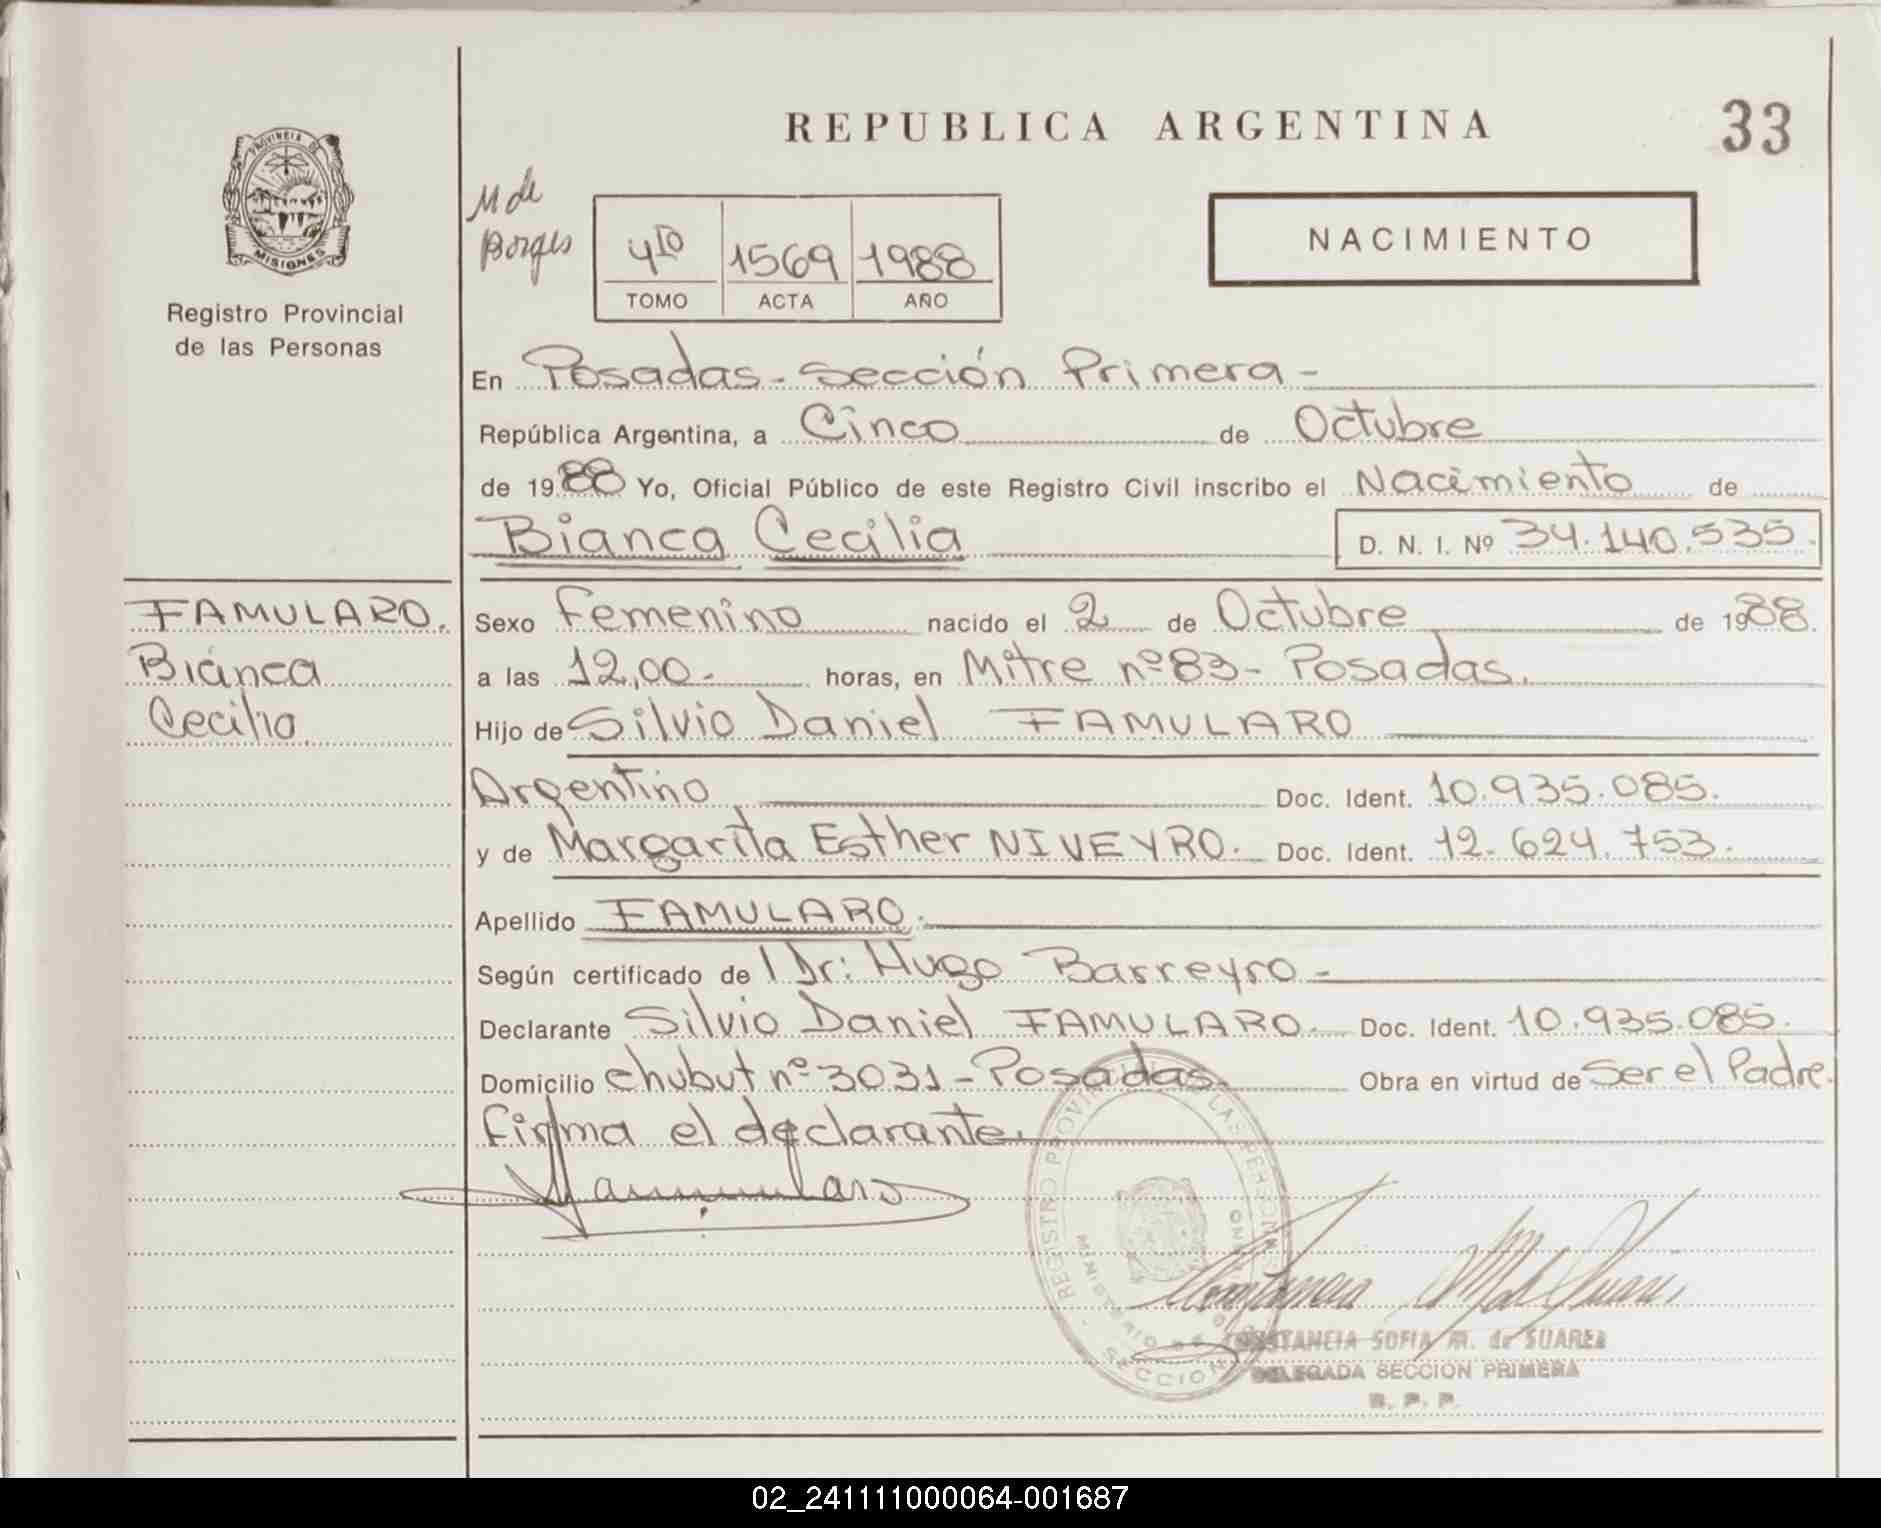 REPUBLICA ARGENTINA
33
PROVINCIA DE
MISIONES
Registro Provincial
de las Personas
M de
Borges
4to 1569 1988
TOMO ACTA AÑO
NACIMIENTO
En Posadas - Sección Primera -
República Argentina, a Cinco de Octubre
de 1988 Yo, Oficial Público de este Registro Civil inscribo el Nacimiento de
Bianca Cecilia D. N. I. Nº 34.140.535.
FAMULARO.
Bianca
Cecilia
Sexo Femenino nacido el 2 de Octubre de 1988.
a las 12,00- horas, en Mitre nº 83- Posadas.
Hijo de Silvio Daniel FAMULARO
Argentino Doc. Ident. 10.935.085.
y de Margarita Esther NIVEYRO. Doc. Ident. 12.624.753.
Apellido FAMULARO.
Según certificado de Dr: Hugo Barreyro -
Declarante Silvio Daniel FAMULARO. Doc. Ident. 10.935.085.
Domicilio Chubut nº 3031 - Posadas. Obra en virtud de Ser el Padre.
Firma el declarante.
Famularo
REGISTRO PROVINCIAL DE LAS PERSONAS
MINISTERIO DE GOBIERNO
SECCION
CONSTANCIA SOFIA M. de SUAREZ
DELEGADA SECCION PRIMERA
R. P. P.
02_241111000064-001687